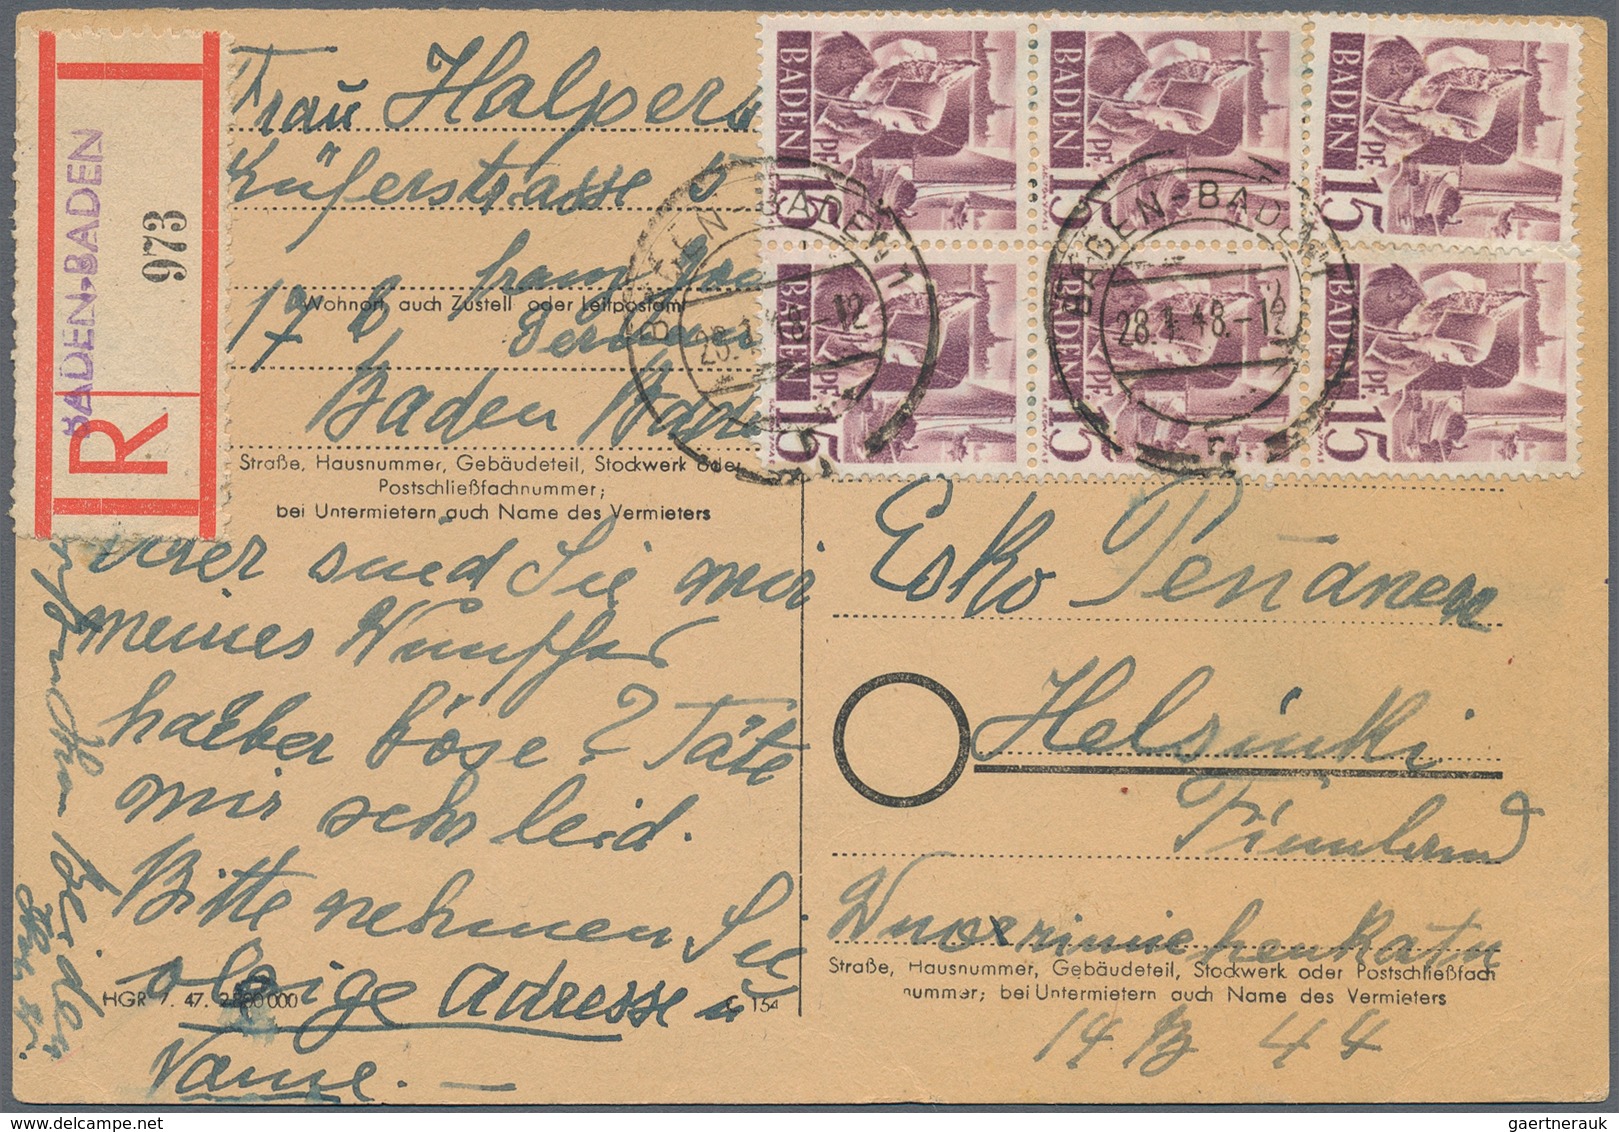 BADEN-BADEN
R
973
Frau Halpern
Küferstrasse 5
Wohnort, auch Zustell- oder Leitpostamt
17 b
Baden Baden
Straße, Hausnummer, Gebäudeteil, Stockwerk oder
Postschließfachnummer;
bei Untermietern auch Name des Vermieters
sind Sie mir
meines
halber böse? Täte
mir sehr leid.
Bitte nehmen Sie
obige Adresse u
Name. —
HGR 7. 47. 2 000 000
C 154
BADEN 15 PF.
BADEN 15 PF.
BADEN 15 PF.
BADEN 15 PF.
BADEN 15 PF.
BADEN 15 PF.
BADEN-BADEN 1
28.1.48.-12
BADEN-BADEN 1
28.1.48.-12
Esko Penänen
Helsinki
Finnland
Straße, Hausnummer, Gebäudeteil, Stockwerk oder Postschließfach
nummer; bei Untermietern auch Name des Vermieters
14 B 44
gaertnerauk